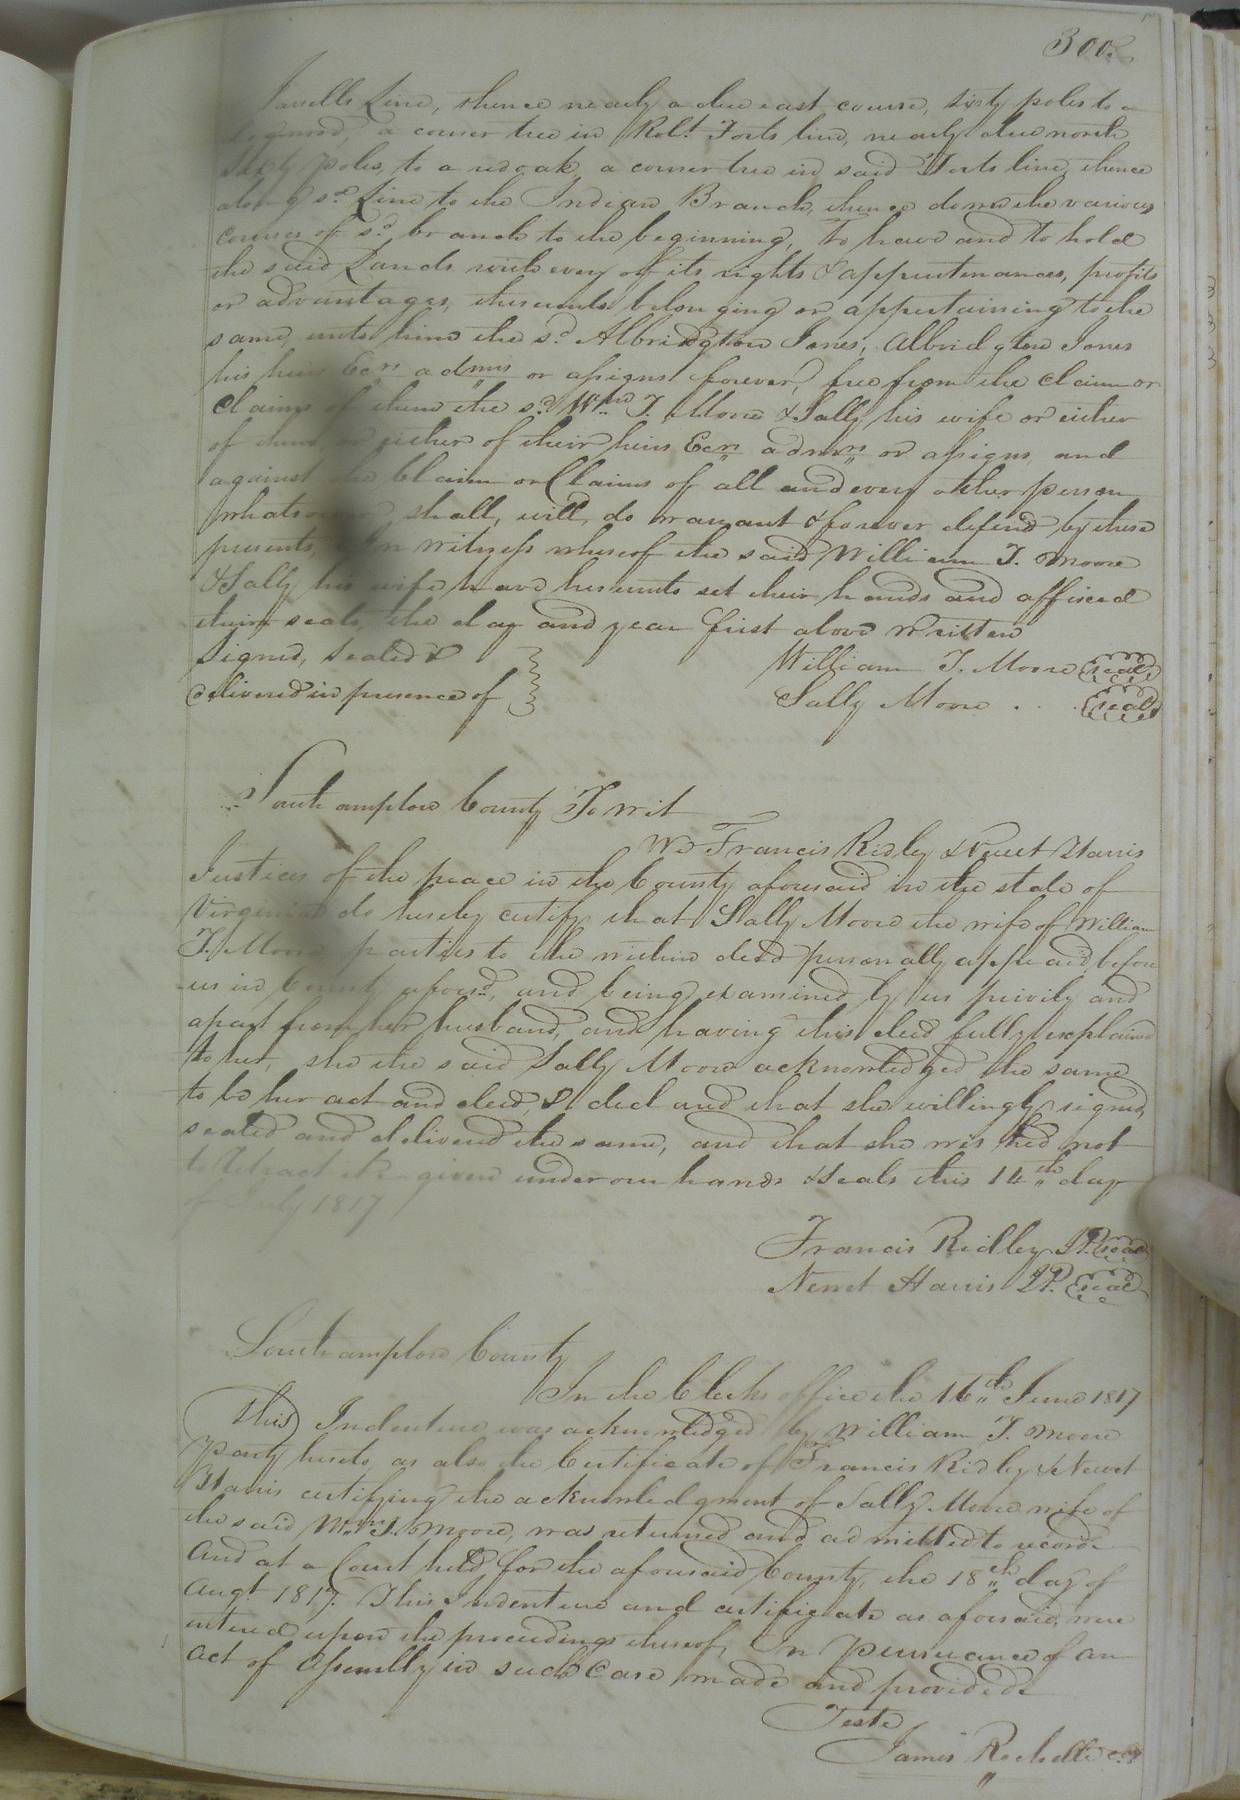 300
Jarrells Line, thence nearly a due east course, sixty poles to a
dogwood, a corner tree in Robt Forts line, nearly due north
sixty poles, to a red oak a corner tree in said Forts line, thence
along sd Line to the Indian Branch, thence down the various
courses of sd branch to the beginning, To have and to hold
the said Lands with every of its rights & appurtenances, profits
or advantages, thereunto belonging or appertaining to the
same, unto him the sd Albridgton Jones, Albridgton Jones
his heirs Ecrs admrs or assigns forever, free from the claim or
Claims of them the sd Wm T. Moore & Sally his wife or either
of them, or either of their heirs Ecrs admrs or assigns, and
against the Claim or Claims of all and every other person
whatsoever, shall, will, do warrant & forever defend by these
presents, In witness whereof the said William T. Moore
& Sally his wife have hereunto set their hands and affixed
their seals, the day and year first above written
Signed, Sealed &
delivered in presence of
William T. Moore (seal)
Sally Moore . . (seal)
Southampton County To wit
We Francis Ridley & Newet Harris
Justices of the peace in the County aforesaid in the state of
Virginia do hereby certify that Sally Moore the wife of William
T. Moore parties to the within deed personally appeared before
us in County aforsd, and being examined by us privily and
apart from her husband, and having this deed fully explained
to her, she the said Sally Moore acknowledged the same
to be her act and deed, & decl and that she willingly signed
sealed and delivered the same, and that she wished not
to retract it given under our hands & seals this 14th day
of July 1817
Francis Ridley JP. (seal)
Newet Harris JP. (seal)
Southampton County
In the Clerks office the 16th June 1817
This Indenture was acknowledged by William T. Moore
Party hereto, as also the Certificate of Francis Ridley & Newet
Harris certifying the acknowledgment of Sally Moore wife of
the said Wm T. Moore, was returned and admitted to record
And at a Court held for the aforesaid County, the 18th day of
Augt 1817. This Indenture and certificate as aforesaid, were
entered upon the proceedings thereof, In pursuance of an
Act of Assembly in such Case made and provided
Teste
James Rochelle